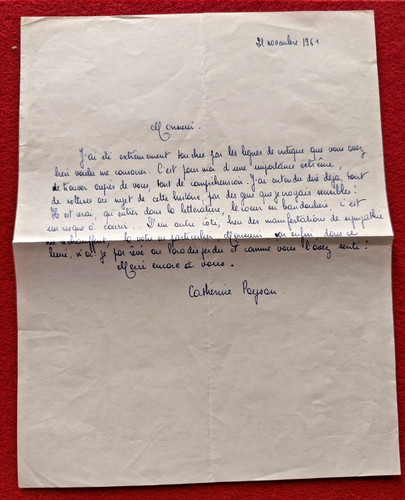 21 novembre 1961
Monsieur.
J'ai été extrêmement touchée par les lignes de critique que vous avez
bien voulu me consacrer. C'est pour moi d'une importance extrême,
de trouver auprès de vous, tant de compréhension. J'ai entendu dire déjà, tant
de sottises au sujet de cette histoire, par des gens que je croyais sensibles!
Il est vrai, qu'entrer dans la littérature, le coeur en bandoulière, c'est
un risque à courir... D'un autre côté, bien des manifestations de sympathie
me réchauffent, la vôtre en particulier, Monsieur, car enfin dans ce
livre, n'ai-je pas rêvé au Paradis perdu et comme vous l'avez senti!
Merci encore à vous.
Catherine Paysan